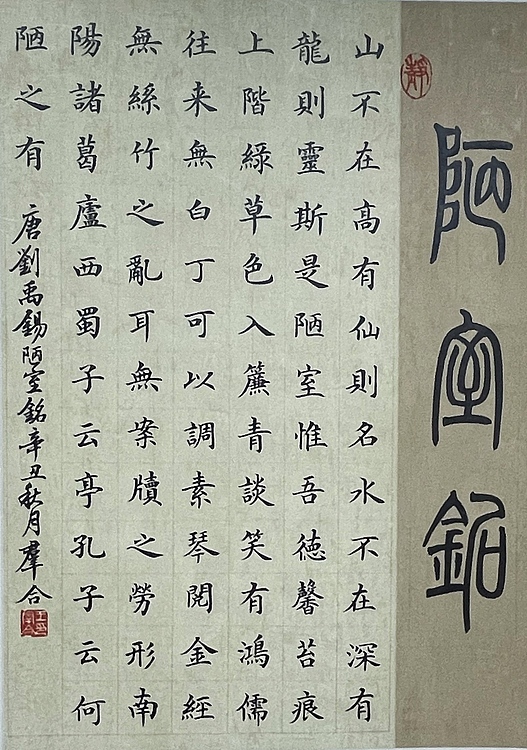 陋室銘
山不在高有仙則名水不在深有
龍則靈斯是陋室惟吾德馨苔痕
上階綠草色入簾青談笑有鴻儒
往来無白丁可以調素琴閱金經
無絲竹之亂耳無案牘之勞形南
陽諸葛廬西蜀子云亭孔子云何
陋之有
唐劉禹錫陋室銘辛丑秋月羣合